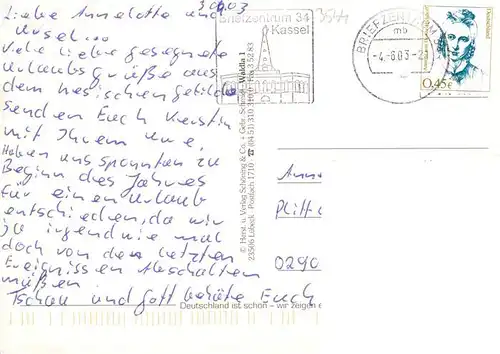 30.03
Liebe Annelotte und
Ursel...
Viele liebe gesegnete
Urlaubsgrüße aus
dem hessischen gefilde
senden Euch Kerstin
mit Ihrem Uwe,
Haben uns spontan zu
Beginn des Jahres
für einen Urlaub
entschieden, da wir
ja irgendwie mal
doch von den letzten
Ereignissen Abschalten
müßen
Tschau und Gott behüte Euch
Briefzentrum 34
Kassel
BRIEFZENTRUM
mb
-4.-6.03-2
Deutschland
0,45€
© Herst. u. Verlag Schöning & Co. + Gebr. Schmidt · Waldla 1
23506 Lübeck · Postfach 1710 ☎ (0451) 31 03
Deutschland ist schön – wir zeigen e
Anne
Plitt
0290